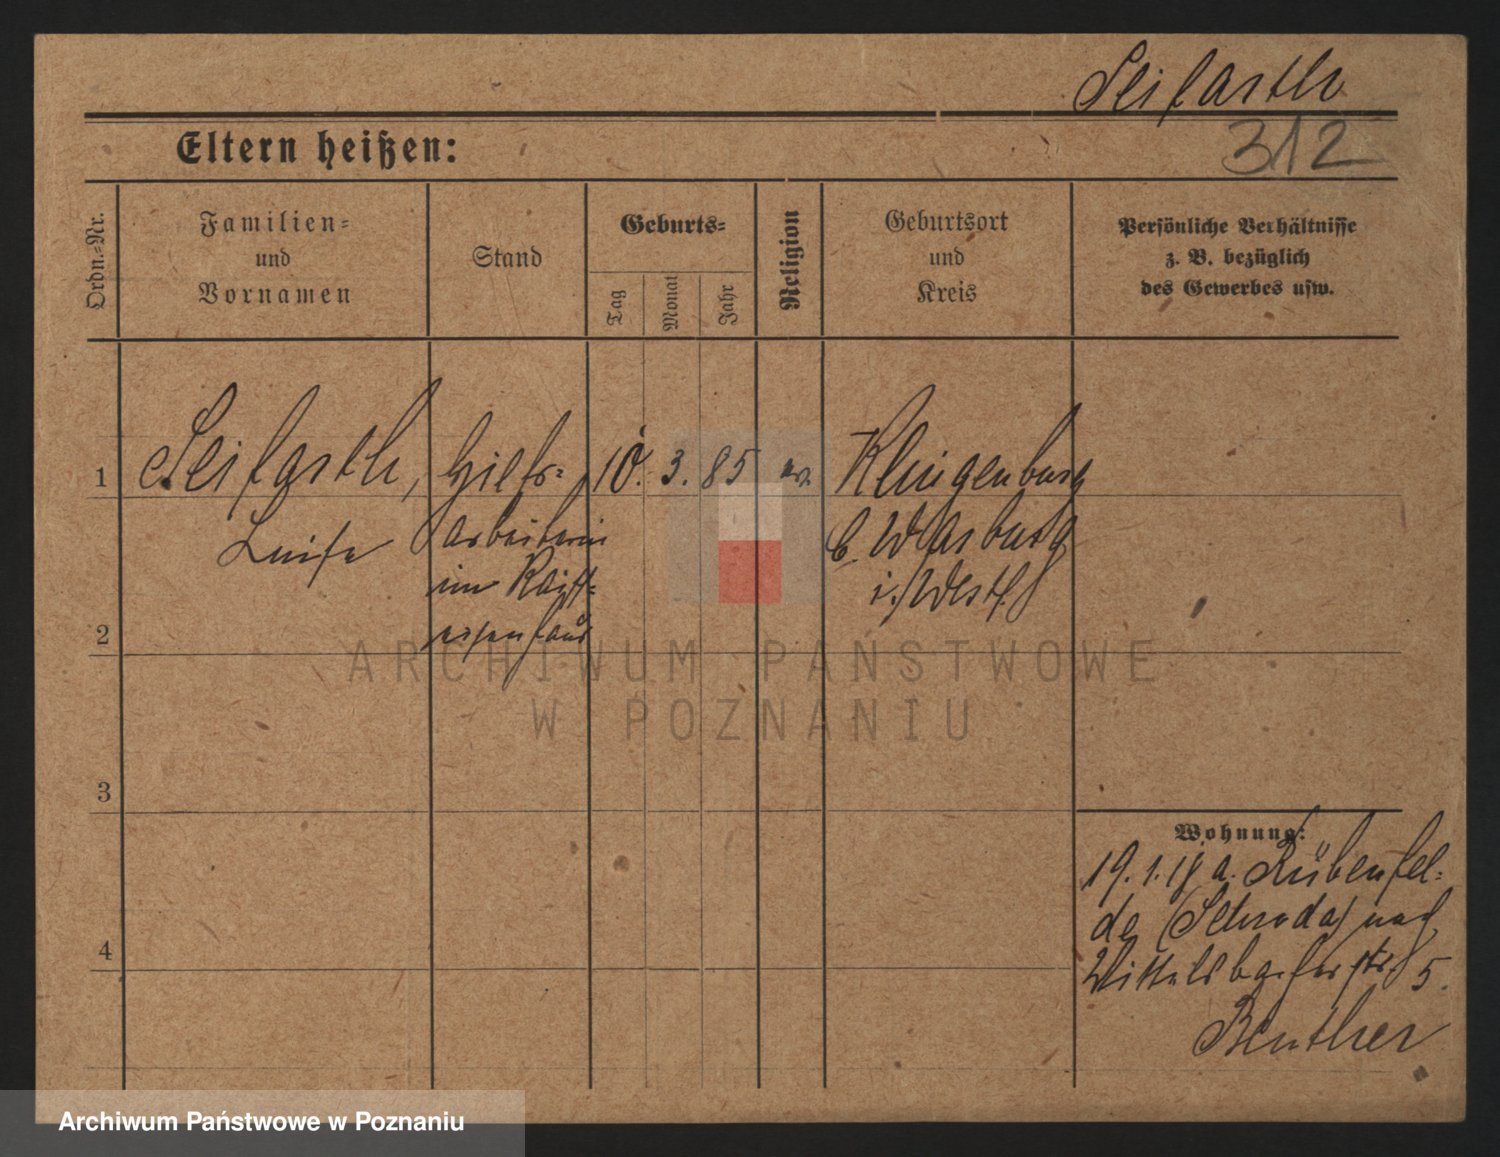 Seifarth
312
Eltern heißen:
Ordn.-Nr.
Familien-
und
Vornamen
Stand
Geburts-
Tag
Monat
Jahr
Religion
Geburtsort
und
Kreis
Persönliche Verhältnisse
z. B. bezüglich
des Gewerbes usw.
1
Seifarth, Hilfs- 10. 3. 85 Klingenburg
Luise arbeiterin b. Warburg
im Raiff- i. Westf.
2
eisenhaus
ARCHIWUM PAŃSTWOWE
W POZNANIU
3
Wohnung:
19.1.18 a. Rübenfel-
de (Schroda) nach
4
Wittelsbacherstr. 5.
Beuther
Archiwum Państwowe w Poznaniu